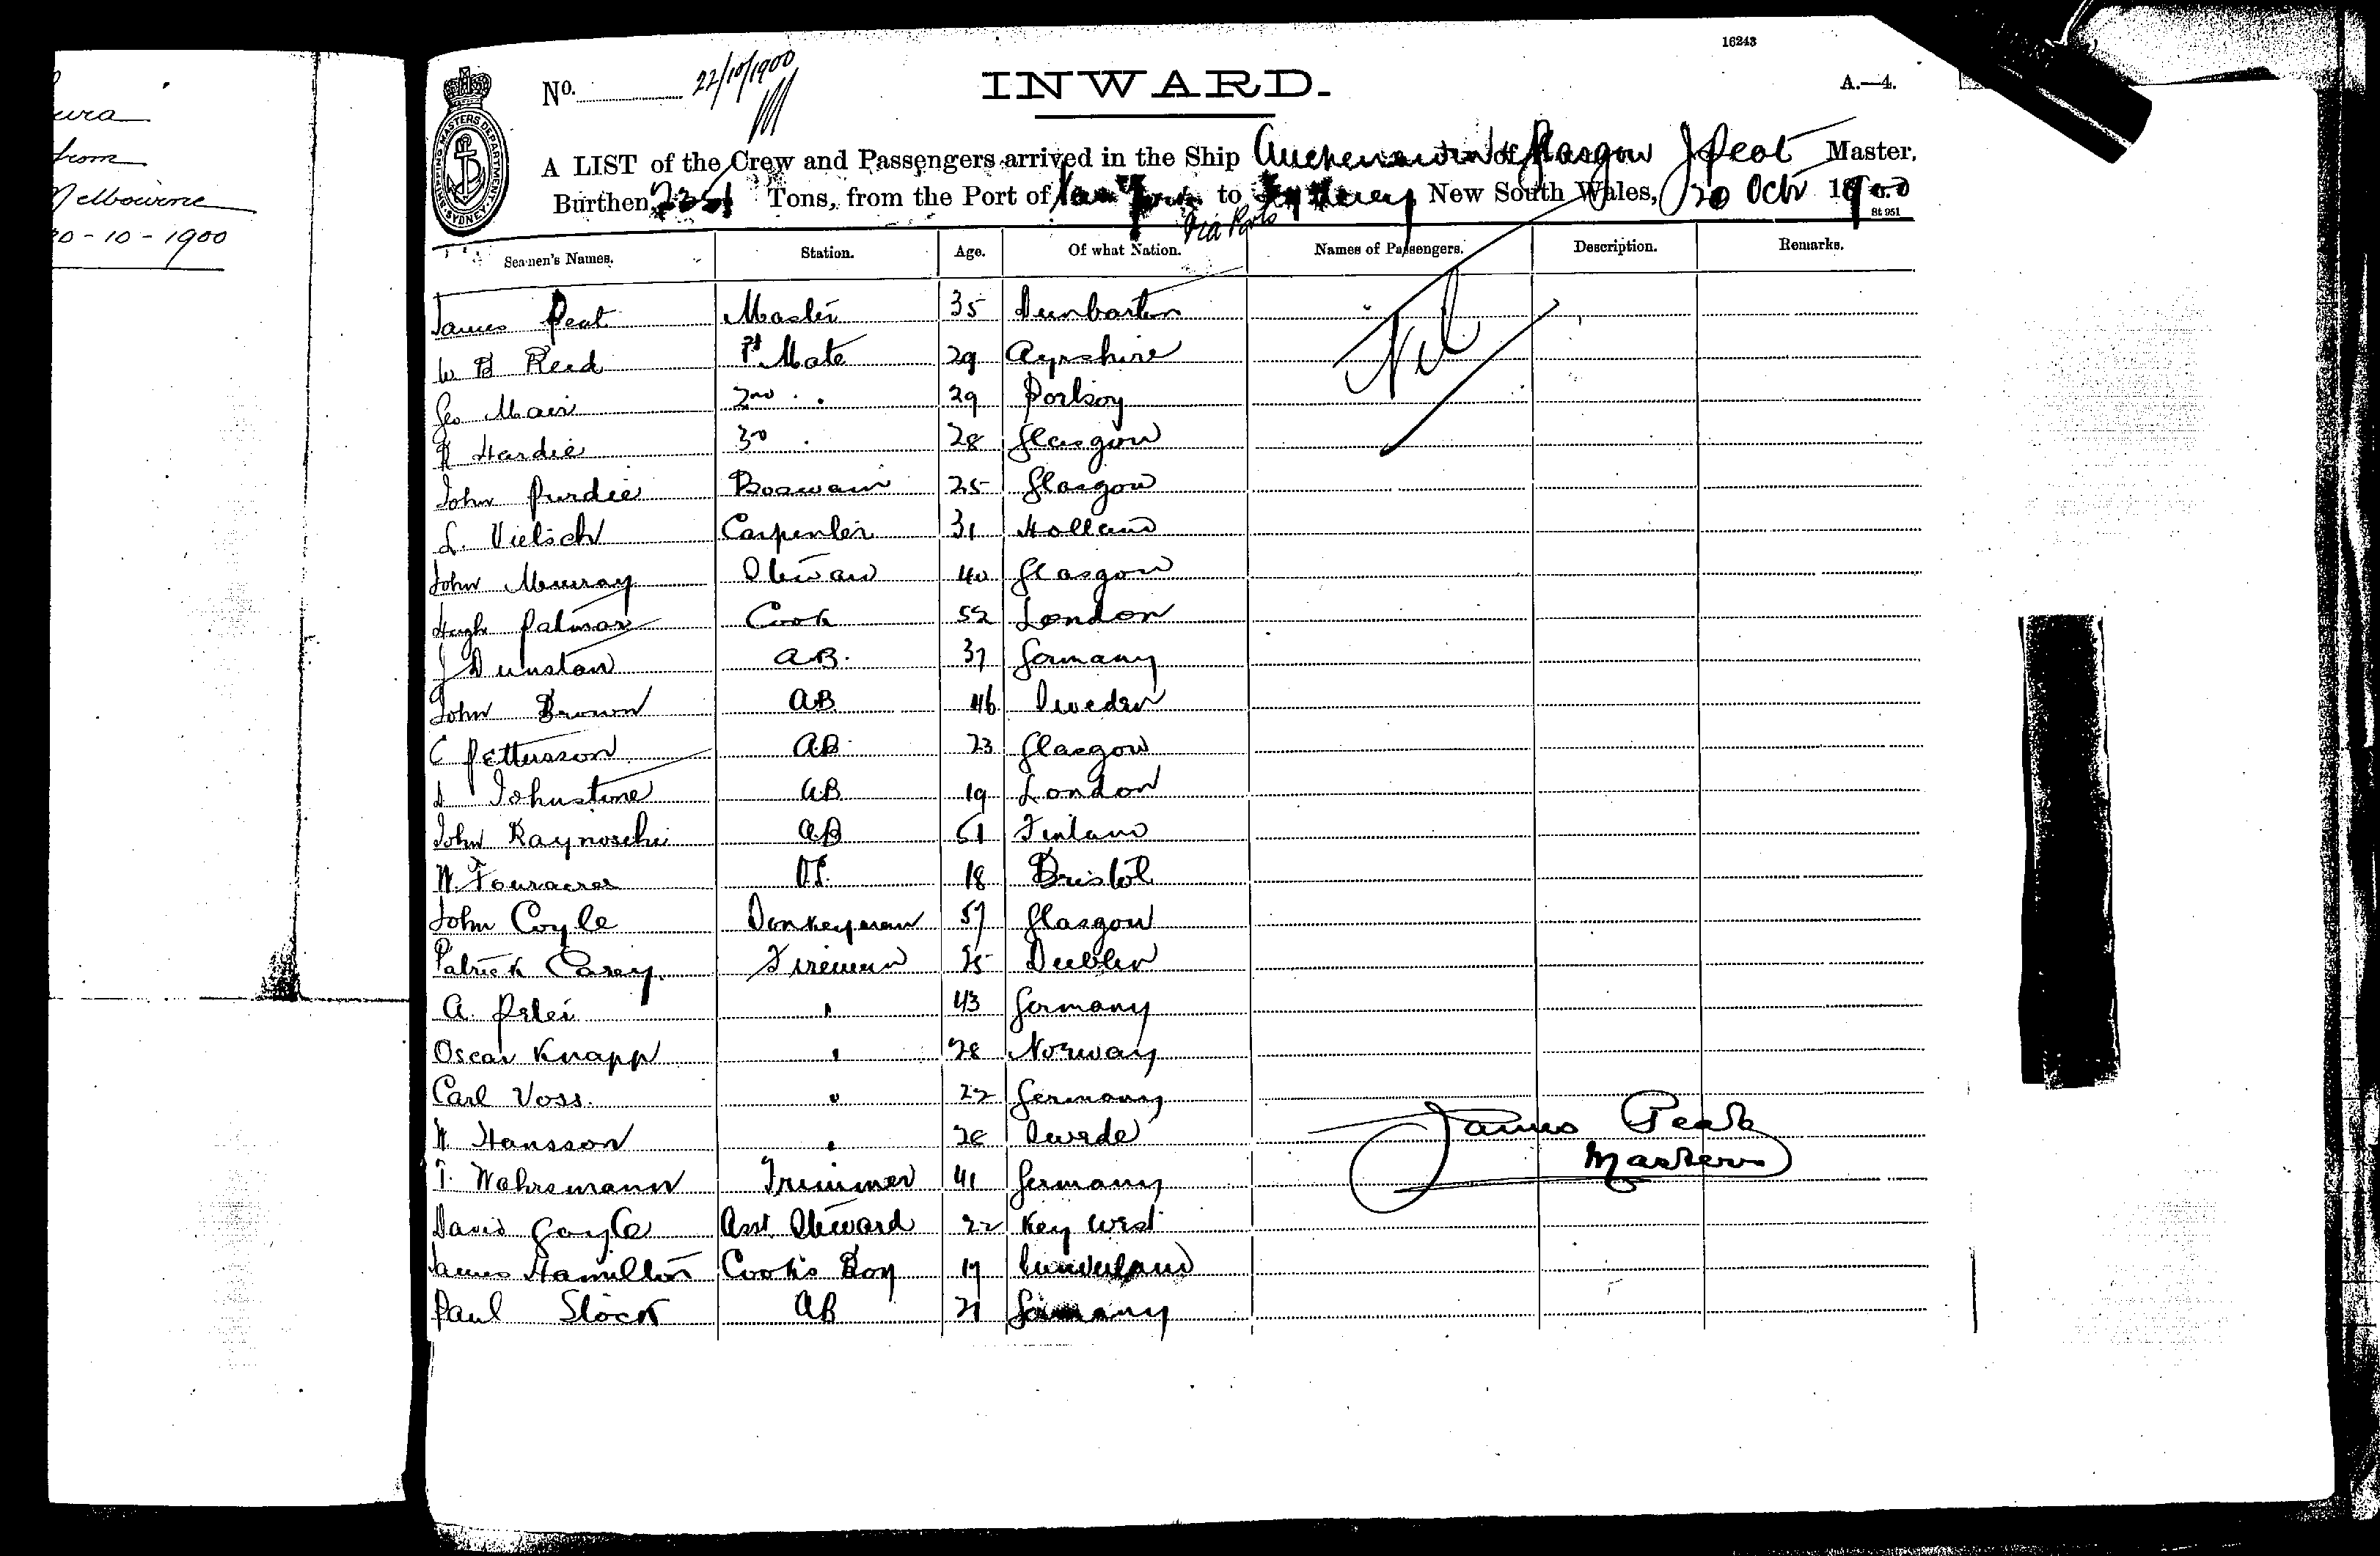 ura
from
Melbourne
20-10-1900
16243
No. 22/10/1900
INWARD.
A.—4.
SHIPPING MASTERS DEPARTMENT SYDNEY
A LIST of the Crew and Passengers arrived in the Ship of Glasgow J Peat Master,
Burthen Tons, from the Port of New York to Sydney New South Wales, 20 Octr 1900
Via Ports
St 951
Seamen's Names. Station. Age. Of what Nation. Names of Passengers. Description. Remarks.
James Peat Master 35 Dunbarton
Nil
W B Reid 1st Mate 29 Ayrshire
Geo Mair 2nd " 29 Portsoy
R Hardie 3rd " 28 Glasgow
John Purdie Boswain 25 Glasgow
L. Vielsch Carpenter 31 Holland
John Murray Steward 40 Glasgow
Hugh Palmar Cook 52 London
J Dunstan A.B. 37 Germany
John Brown AB 46 Sweden
C Pettersson AB 23 Glasgow
D Johnstone AB 19 London
John Raynoschi AB 51 Finland
W. Fouracres O.S. 18 Bristol
John Coyle Donkeyman 57 Glasgow
Patrick Casey Fireman 25 Dublin
A. Peter " 43 Germany
Oscar Knapp " 28 Norway
Carl Voss. " 22 Germany
W Hansson " 28 Swede
T. Wahrsmann Trimmer 41 Germany
David Gayle Asst Steward 22 Key West
James Hamilton Cook's Boy 19 Sunderland
Paul Stock AB 21 Germany
James Peat
Master